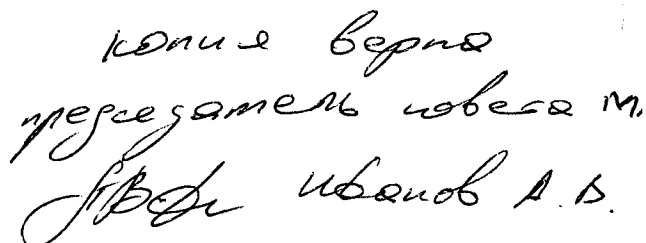 копия верна
председатель совета м.
Иванов А.В.